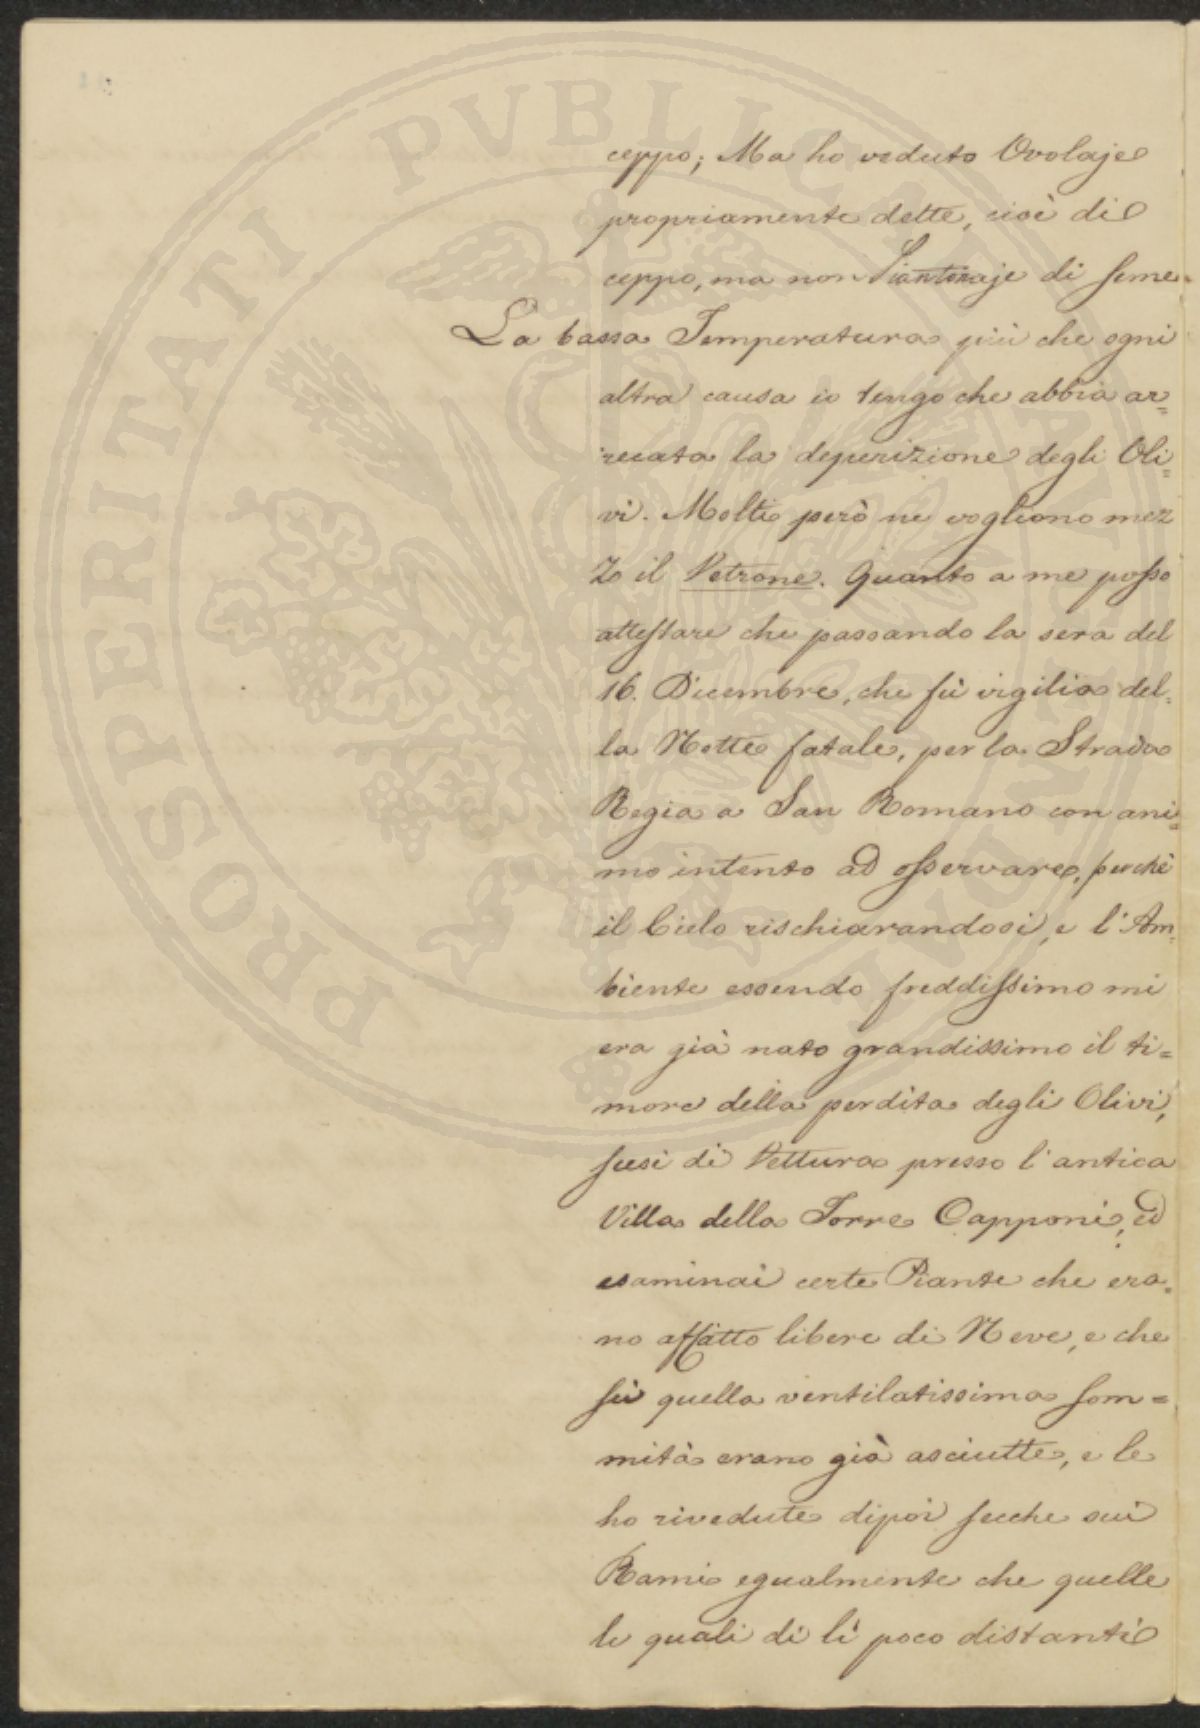 ceppo; Ma ho veduto Ovolaje
propriamente dette, cioè di
ceppo, ma non Piantonaje di seme.
La bassa Temperatura più che ogni
altra causa io tengo che abbia ar=
recata la deperizione degli Oli=
vi. Molti però ne vogliono mez
zo il Vetrone. Quanto a me posso
attestare che passando la sera del
16. Dicembre, che fù vigilia del=
la Notte fatale, per la Strada
Regia a San Romano con ani=
mo intento ad osservare, perchè
il Cielo rischiarandosi, e l'Am=
biente essendo freddissimo mi
era già nato grandissimo il ti=
more della perdita degli Olivi,
scesi di Vettura presso l'antica
Villa della Torre Capponi, ed
esaminai certe Piante che era=
no affatto libere di Neve, e che
sù quella ventilatissima som=
mità erano già asciutte, e le
ho rivedute dipoi secche sui
Rami egualmente che quelle
le quali di lì poco distanti
PROSPERITATI PVBLICAE AVGENDAE